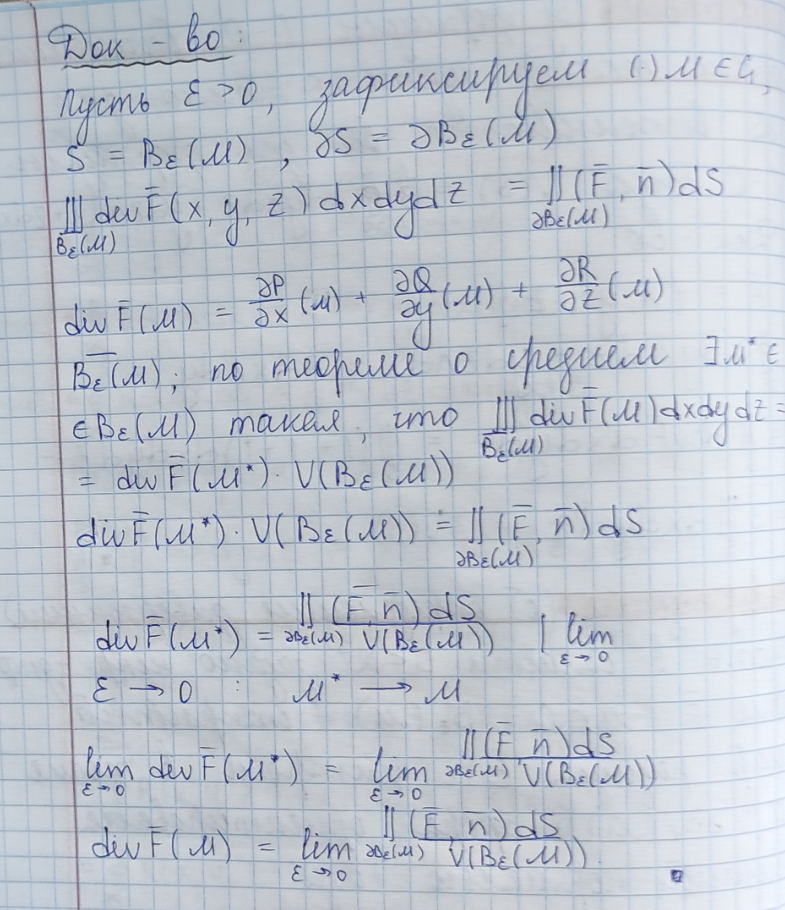 Док-во:
Пусть ε > 0, зафиксируем (·) M ∈ G,
S = B_ε(M), ∂S = ∂B_ε(M)
∭_{B_ε(M)} div F̄(x, y, z) dxdydz = ∬_{∂B_ε(M)} (F̄, n̄) dS
div F̄(M) = ∂P/∂x (M) + ∂Q/∂y (M) + ∂R/∂z (M)
\overline{B_ε(M)}; по теореме о среднем ∃ M* ∈
∈ B_ε(M) такая, что ∭_{B_ε(M)} div F̄(M) dxdydz =
= div F̄(M*) · V(B_ε(M))
div F̄(M*) · V(B_ε(M)) = ∬_{∂B_ε(M)} (F̄, n̄) dS
div F̄(M*) = ∬_{∂B_ε(M)} (F̄, n̄) dS / V(B_ε(M)) | lim_{ε→0}
ε → 0 : M* → M
lim_{ε→0} div F̄(M*) = lim_{ε→0} ∬_{∂B_ε(M)} (F̄, n̄) dS / V(B_ε(M))
div F̄(M) = lim_{ε→0} ∬_{∂B_ε(M)} (F̄, n̄) dS / V(B_ε(M)).